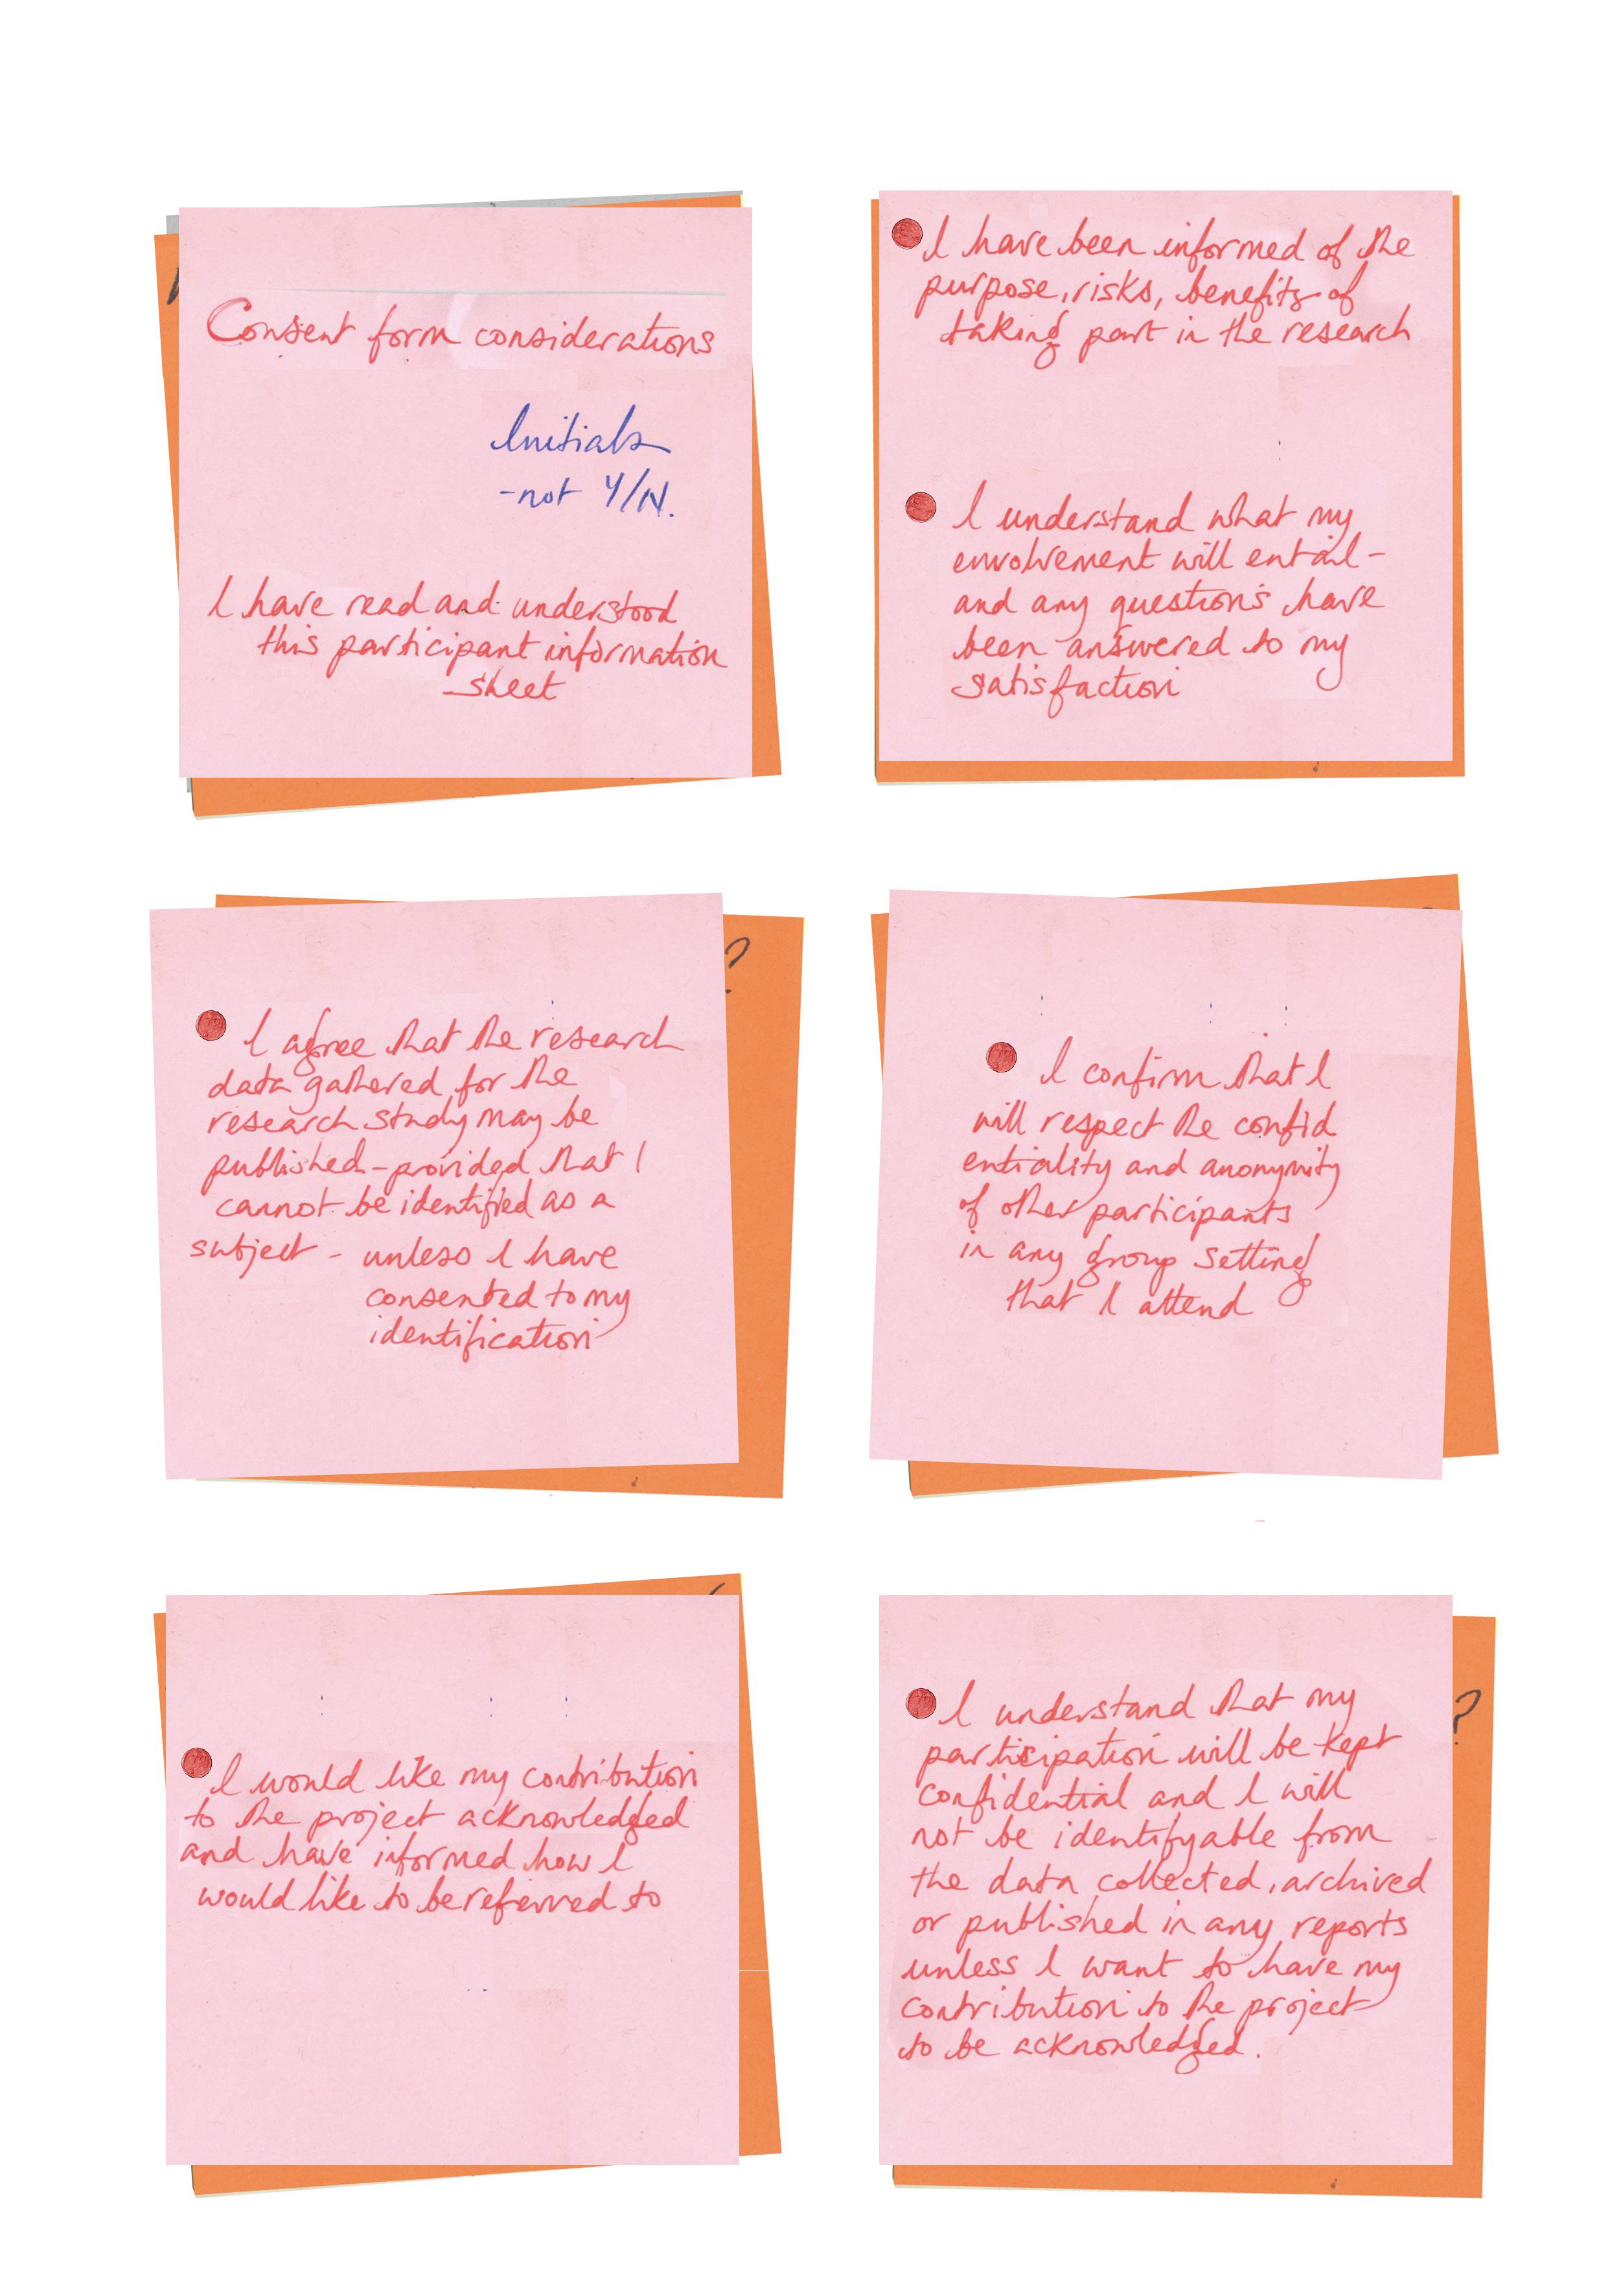 Consent form considerations
Initials
-not Y/N.
I have read and understood
this participant information
sheet
I have been informed of the
purpose, risks, benefits of
taking part in the research
I understand what my
envolvement will entail -
and any questions have
been answered to my
satisfaction
?
I agree that the research
data gathered for the
research study may be
published - provided that I
cannot be identified as a
subject - unless I have
consented to my
identification
I confirm that I
will respect the confid
entiality and anonymity
of other participants
in any group setting
that I attend
I would like my contribution
to the project acknowledged
and have informed how I
would like to be referred to
?
I understand that my
participation will be kept
confidential and I will
not be identifyable from
the data collected, archived
or published in any reports
unless I want to have my
contribution to the project
to be acknowledged.